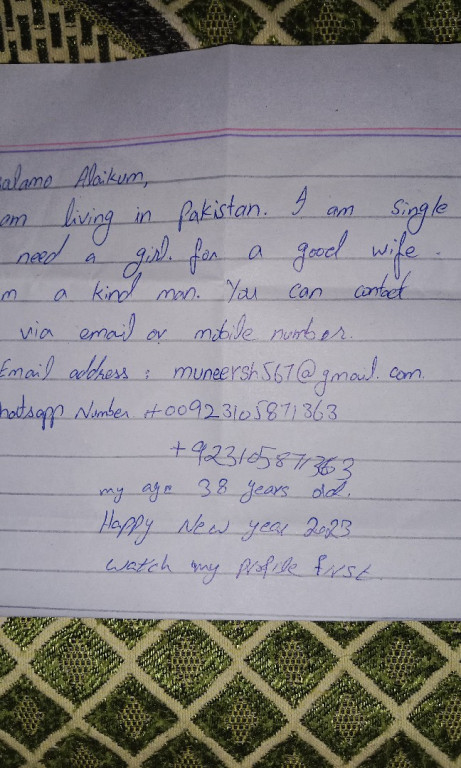 alamo Alaikum,
am living in Pakistan. I am single
need a girl. for a good wife.
m a kind man. You can contact
via email or mobile number.
Email address : muneersh567@gmail.com.
hatsapp Number +00923105871363
+923105871363
my age 38 years old.
Happy New year 2023
watch my profile first.